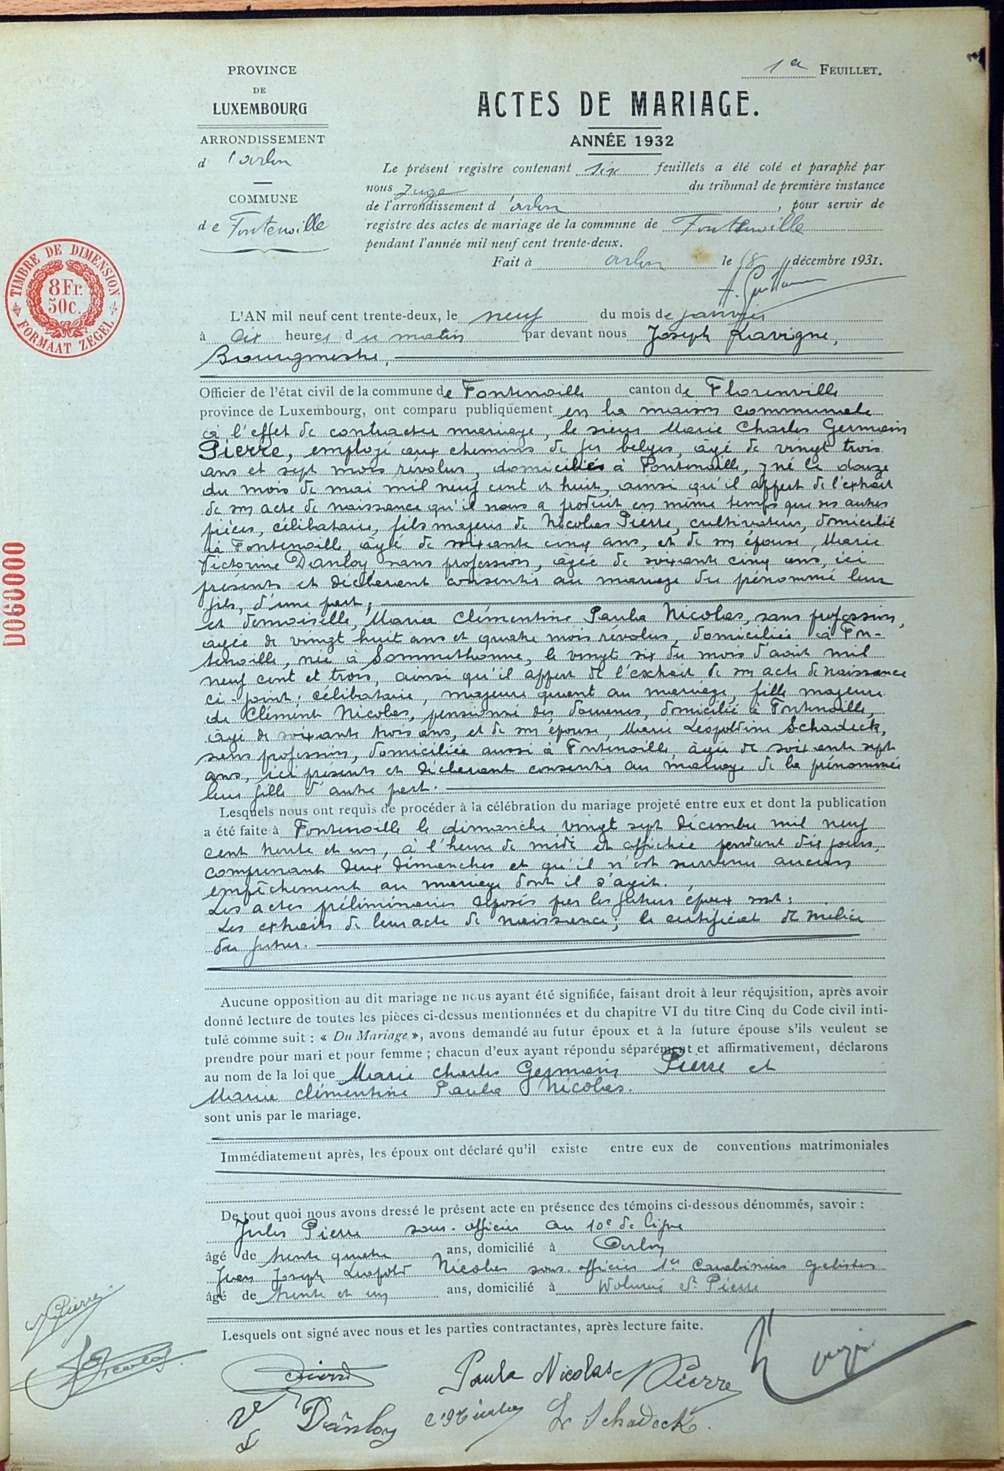 1er FEUILLET.
PROVINCE
DE
LUXEMBOURG
ARRONDISSEMENT
d'Arlon
COMMUNE
de Fontenoille
ACTES DE MARIAGE.
ANNÉE 1932
Le présent registre contenant six feuillets a été coté et paraphé par
nous Juge du tribunal de première instance
de l'arrondissement d'Arlon, pour servir de
registre des actes de mariage de la commune de Fontenoille
pendant l'année mil neuf cent trente-deux.
Fait à Arlon le 18 décembre 1931.
TIMBRE DE DIMENSION
8 Fr.
50c.
FORMAAT ZEGEL
D060000
L'AN mil neuf cent trente-deux, le neuf du mois de janvier
à dix heures du matin par devant nous Joseph Lavigne,
Bourgmestre,
Officier de l'état civil de la commune de Fontenoille canton de Florenville
province de Luxembourg, ont comparu publiquement en la maison communale
à l'effet de contracter mariage, le sieur Marie Charles Germain
Pierre, employé aux chemins de fer belges, âgé de vingt trois
ans et sept mois revolus, domicilié à Fontenoille, y né le douze
du mois de mai mil neuf cent et huit, ainsi qu'il appert de l'extrait
de son acte de naissance qu'il nous a produit en même temps que ses autres
pièces, célibataire, fils majeur de Nicolas Pierre, cultivateur, domicilié
à Fontenoille, âgé de soixante cinq ans, et de son épouse, Marie
Victorine Danloy, sans profession, âgée de soixante cinq ans, ici
présents et déclarant consentir au mariage du prénommé leur
fils, d'une part;
et demoiselle, Maria Clémentine Paula Nicolas, sans profession,
âgée de vingt huit ans et quatre mois revolus, domiciliée à Fon-
tenoille, née à Sommethonne, le vingt six du mois d'août mil
neuf cent et trois, ainsi qu'il appert de l'extrait de son acte de naissance
ci-joint; célibataire, majeure quant au mariage, fille majeure
de Clément Nicolas, pensionné des douanes, domicilié à Fontenoille,
âgé de soixante trois ans, et de son épouse, Marie Léopoldine Schadeck,
sans profession, domiciliée aussi à Fontenoille, âgée de soixante sept
ans, ici présents et déclarant consentir au mariage de la prénommée
leur fille d'autre part.
Lesquels nous ont requis de procéder à la célébration du mariage projeté entre eux et dont la publication
a été faite à Fontenoille le dimanche vingt sept décembre mil neuf
cent trente et un, à l'heure de midi et affichée pendant dix jours,
comprenant deux dimanches et qu'il n'est survenu aucun
empêchement au mariage dont il s'agit.
Les actes préliminaires déposés par les futurs époux sont:
Les extraits de leur acte de naissance; le certificat de milice
du futur.
Aucune opposition au dit mariage ne nous ayant été signifiée, faisant droit à leur réquisition, après avoir
donné lecture de toutes les pièces ci-dessus mentionnées et du chapitre VI du titre Cinq du Code civil inti-
tulé comme suit : « Du Mariage », avons demandé au futur époux et à la future épouse s'ils veulent se
prendre pour mari et pour femme ; chacun d'eux ayant répondu séparément et affirmativement, déclarons
au nom de la loi que Marie Charles Germain Pierre et
Maria Clémentine Paula Nicolas.
sont unis par le mariage.
Immédiatement après, les époux ont déclaré qu'il existe entre eux de conventions matrimoniales
De tout quoi nous avons dressé le présent acte en présence des témoins ci-dessous dénommés, savoir :
Jules Pierre sous-officier au 10e de ligne
âgé de trente quatre ans, domicilié à Arlon
Jean Joseph Léopold Nicolas sous-officier 1er Carabiniers cyclistes
âgé de trente et un ans, domicilié à Woluwé St Pierre
Lesquels ont signé avec nous et les parties contractantes, après lecture faite.
Pierre
Nicolas
Pierre Paula Nicolas Pierre
V Danloy Nicolas L Schadeck.